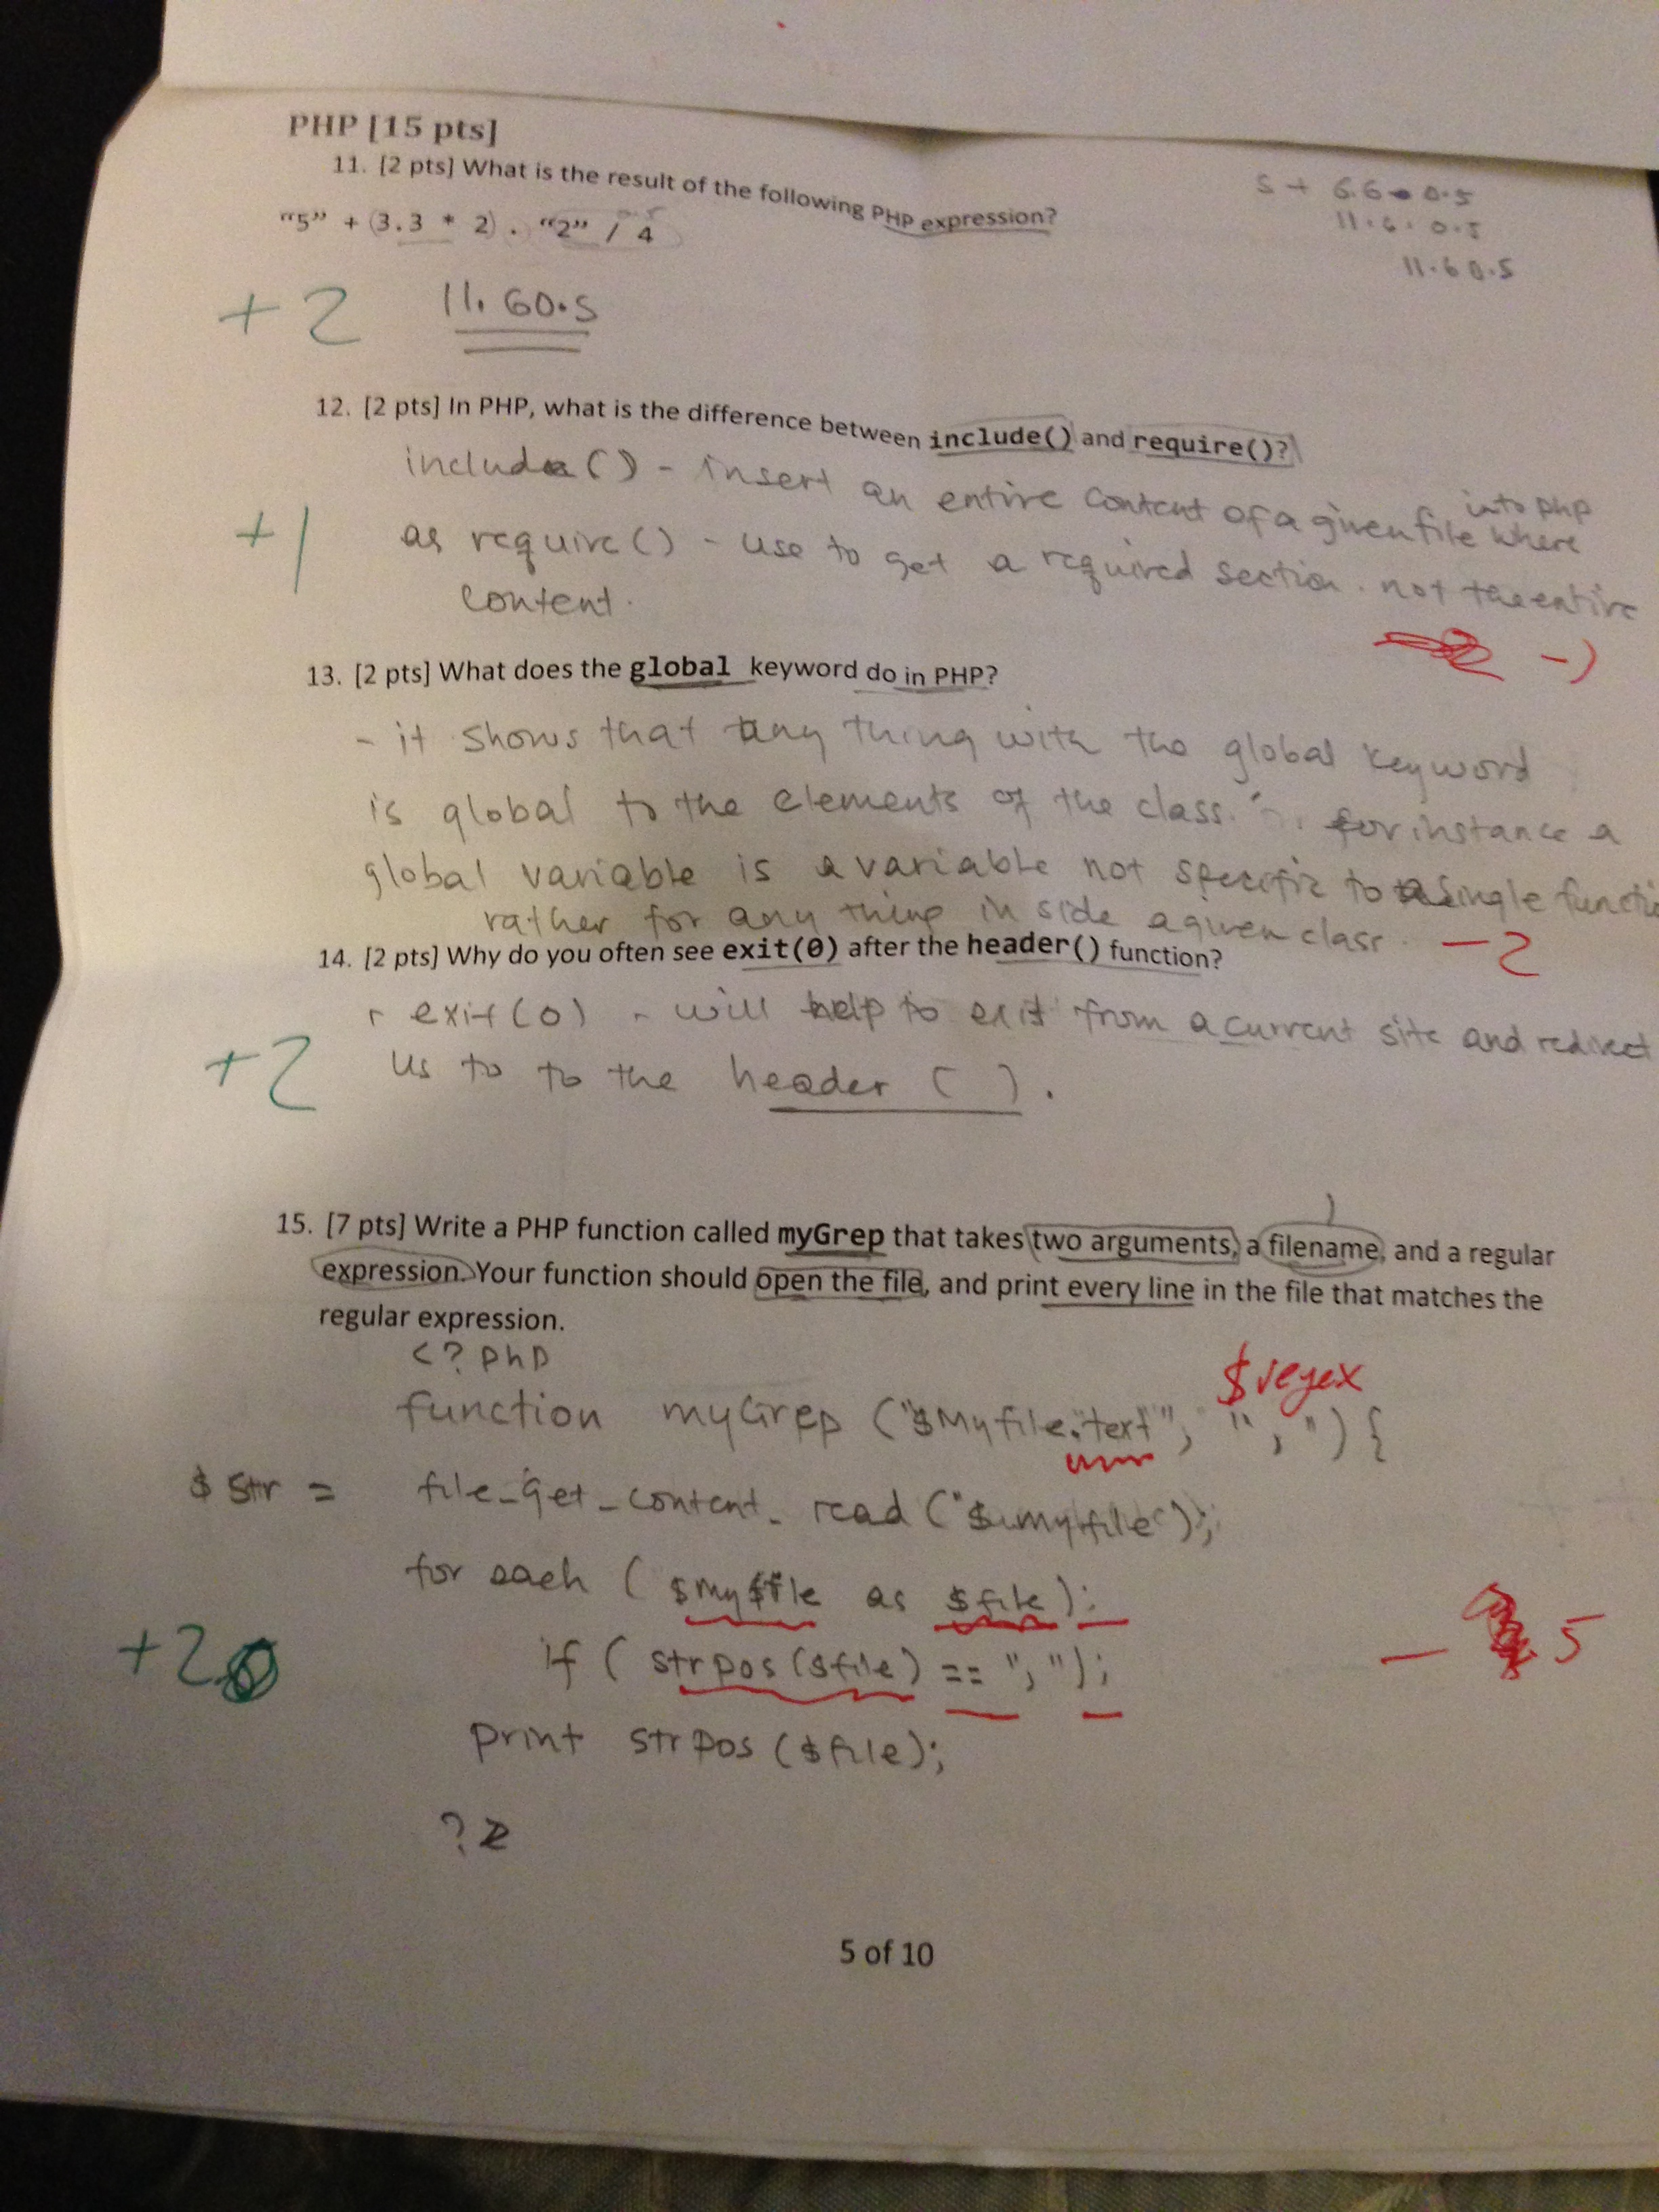 PHP [15 pts]
11. [2 pts] What is the result of the following PHP expression?
5 + 6.6 0.5
"5" + (3.3 * 2) . "2" / 4
0.5
11.6 . 0.5
11.60.5
+2 11.60.5
12. [2 pts] In PHP, what is the difference between include() and require()?
include() - insert an entire content of a given file into php where
+1 as require() - use to get a required section. not the entire
content.
-1
13. [2 pts] What does the global keyword do in PHP?
- it shows that any thing with the global keyword
is global to the elements of the class. for instance a
global variable is a variable not specific to a single functi
rather for any thing in side a given class. -2
14. [2 pts] Why do you often see exit(0) after the header() function?
exit(0) - will help to exit from a current site and redirect
+2 us to to the header ( ).
15. [7 pts] Write a PHP function called myGrep that takes two arguments, a filename, and a regular
expression. Your function should open the file, and print every line in the file that matches the
regular expression.
<? php
$regex
function myGrep ("$Myfile.text", ",") {
$str = file_get_content_read ("$myfile");
for each ( $myfile as $file );
+2 if ( strpos($file) == ","); -5
print strpos ($file);
?>
5 of 10